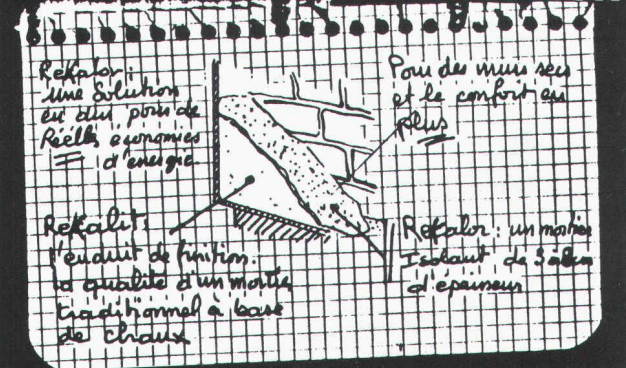 ReKalor :
une solution
en dur pour de
Réelles économies
d'énergie
Pour des murs secs
et le confort en
plus
ReKalit :
l'enduit de finition.
la qualité d'un mortier
traditionnel à base
de chaux
ReKalor : un mortier
Isolant de 3 à
d'épaisseur